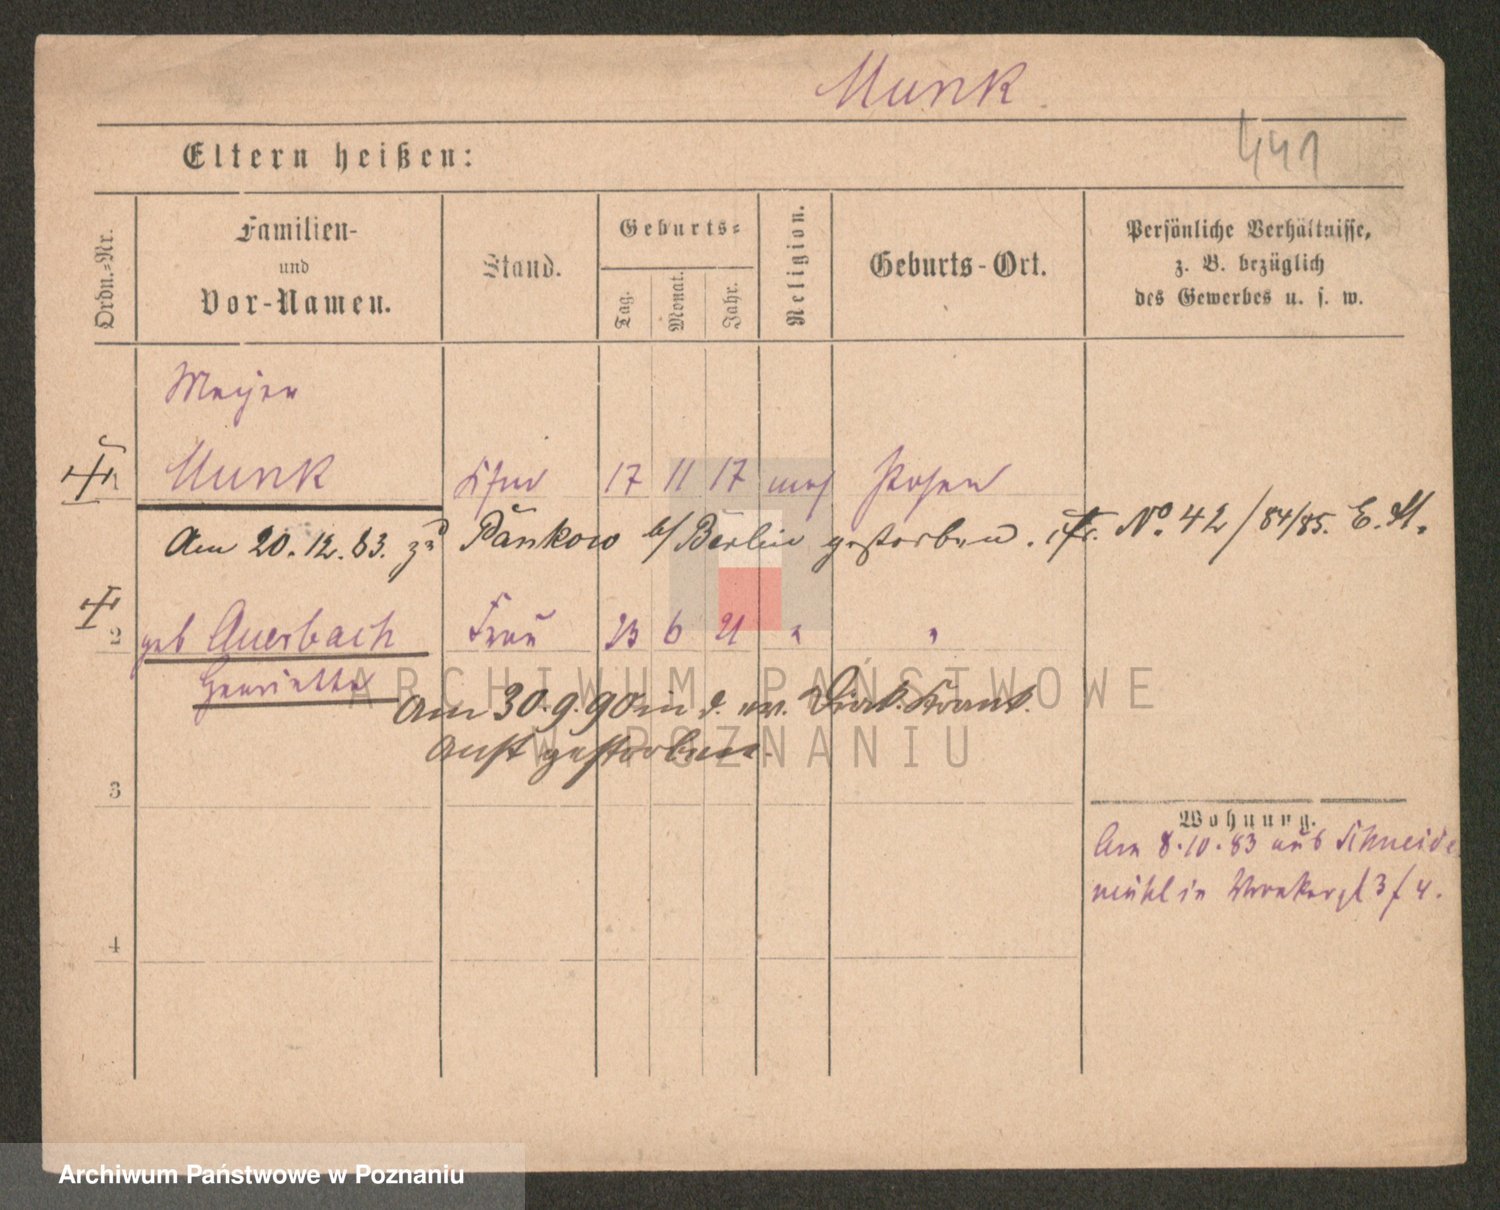 Munk
441
Eltern heißen:
Ordn.=Nr.
Familien-
und
Vor-Namen.
Stand.
Geburts=
Tag.
Monat.
Jahr.
Religion.
Geburts-Ort.
Persönliche Verhältnisse,
z. B. bezüglich
des Gewerbes u. s. w.
Meyer
1 Munk 17 11 17 mos Posen
Am 20.12.83. zu Pankow b/ Berlin gestorben. No. 42/84/85. E. M.
2 geb Auerbach Frau 23 6 21 " "
Henriette
Am 30.9.90 in d. Diak. Krank.
Anst gestorben.
3
4
Wohnung.
Am 8.10.83 aus Schneide
mühl in Wronkerst 3/4.
ARCHIWUM PAŃSTWOWE
W POZNANIU
Archiwum Państwowe w Poznaniu